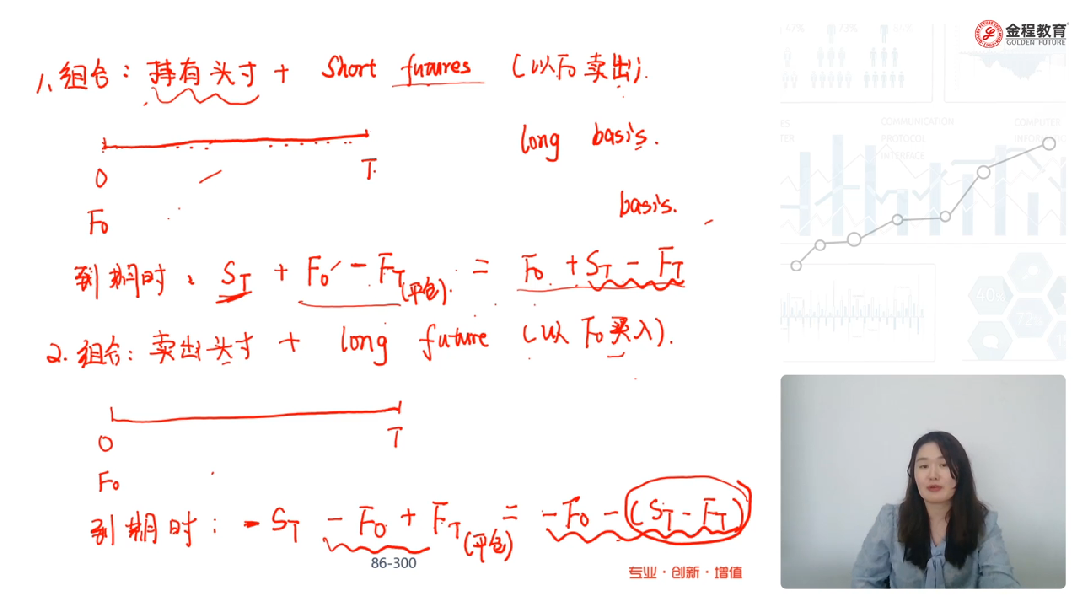 金程教育
GOLDEN FUTURE
1、组合：持有头寸 + Short futures （以F₀卖出）.
long basis.
0 T
F₀
basis.
到期时： S_T + F₀ - F_T(平仓) = F₀ + S_T - F_T
2. 组合：卖出头寸 + long future （以F₀买入）.
0 T
F₀
到期时： -S_T - F₀ + F_T(平仓) = -F₀ - (S_T - F_T)
86-300
专业·创新·增值
COMMUNICATION
PROTOCOL
INTERFACE
COMPUTER